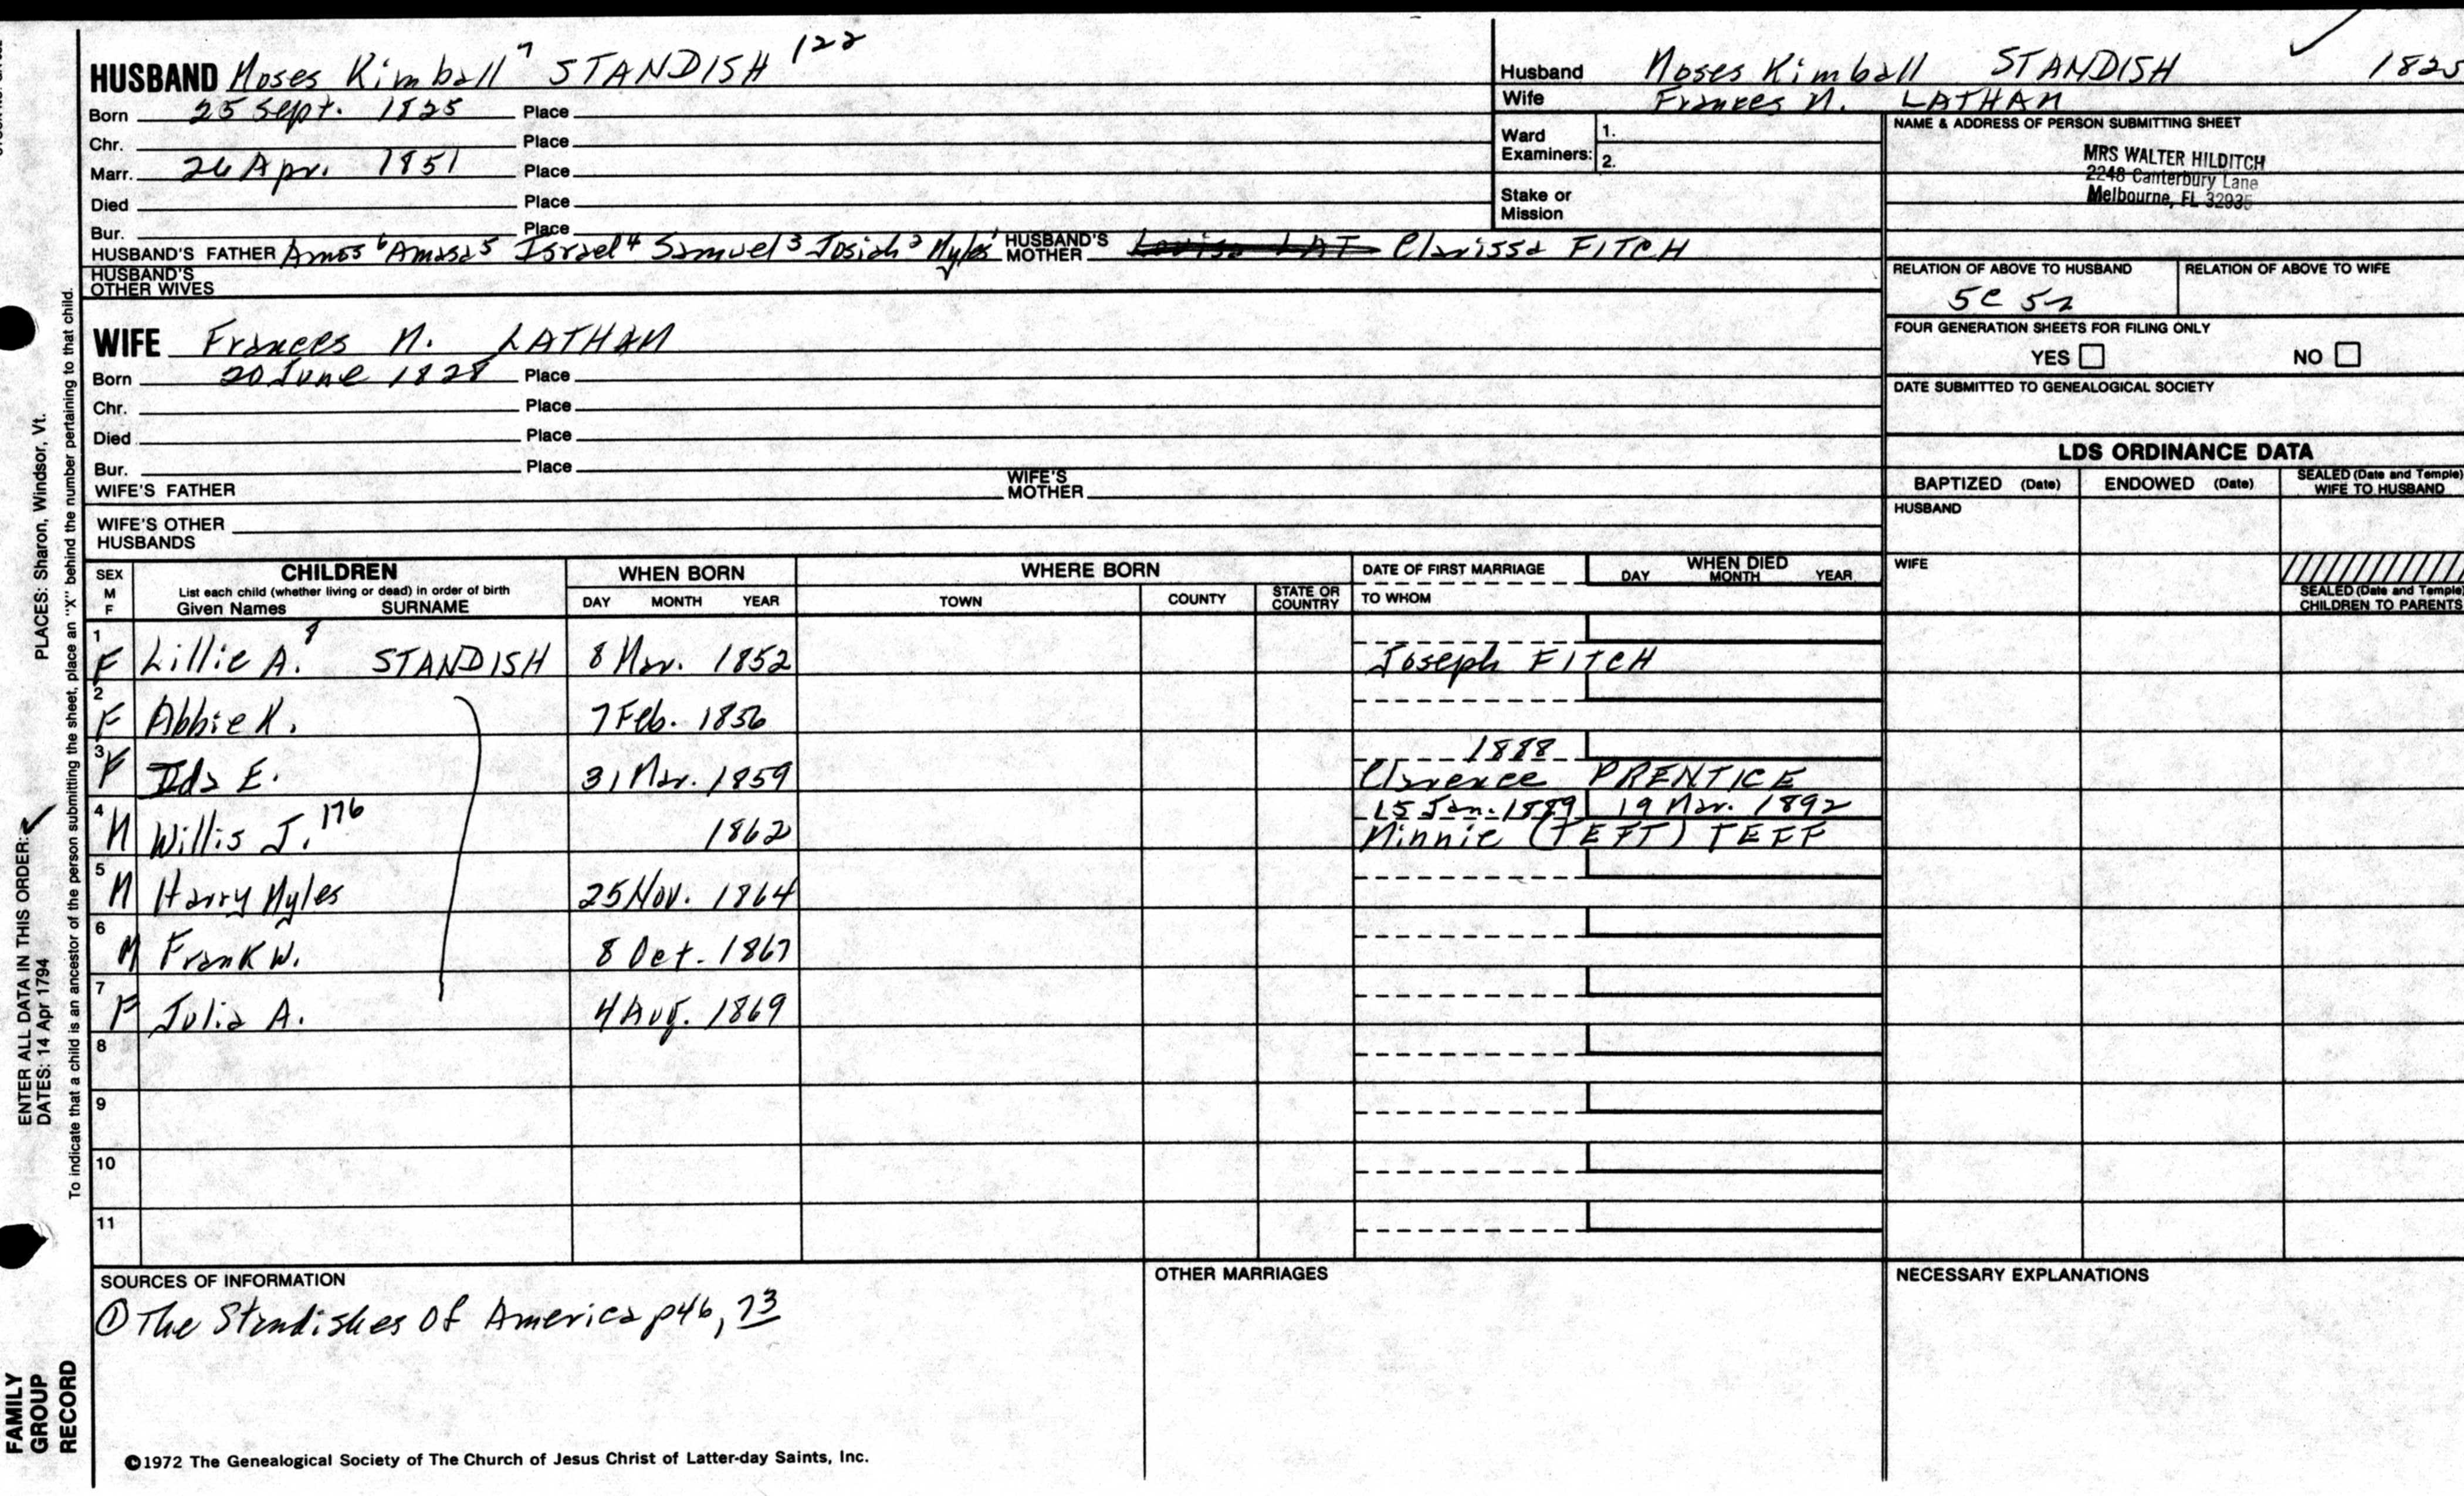 HUSBAND Moses Kimball 7 STANDISH 122
Born 25 Sept. 1825 Place
Chr. Place
Marr. 26 Apr. 1851 Place
Died Place
Bur. Place
HUSBAND'S FATHER Amos 6 Amasa 5 Israel 4 Samuel 3 Josiah 2 Myles 1 HUSBAND'S MOTHER Clarissa FITCH
HUSBAND'S OTHER WIVES
WIFE Frances M. LATHAM
Born 20 June 1828 Place
Chr. Place
Died Place
Bur. Place
WIFE'S FATHER WIFE'S MOTHER
WIFE'S OTHER HUSBANDS
Husband Moses Kimball STANDISH 1825
Wife Frances M. LATHAM
Ward Examiners: 1.
2.
Stake or Mission
NAME & ADDRESS OF PERSON SUBMITTING SHEET
MRS WALTER HILDITCH
2248 Canterbury Lane
Melbourne, FL 32935
RELATION OF ABOVE TO HUSBAND RELATION OF ABOVE TO WIFE
5C 5r
FOUR GENERATION SHEETS FOR FILING ONLY
YES NO
DATE SUBMITTED TO GENEALOGICAL SOCIETY
LDS ORDINANCE DATA
BAPTIZED (Date) ENDOWED (Date) SEALED (Date and Temple) WIFE TO HUSBAND
HUSBAND
WIFE
SEALED (Date and Temple) CHILDREN TO PARENTS
SEX M F
CHILDREN
List each child (whether living or dead) in order of birth
Given Names SURNAME
WHEN BORN
DAY MONTH YEAR
WHERE BORN
TOWN COUNTY STATE OR COUNTRY
DATE OF FIRST MARRIAGE
TO WHOM
WHEN DIED
DAY MONTH YEAR
1 F Lillie A. 8 STANDISH 8 Mar. 1852 Joseph FITCH
2 F Abbie K. 7 Feb. 1856
3 F Ida E. 31 Mar. 1859 1888 Clarence PRENTICE
4 M Willis J. 176 1862 15 Jan. 1889 19 Mar. 1892 Minnie (TEFT) TEFF
5 M Harry Myles 25 Nov. 1864
6 M Frank W. 8 Oct. 1867
7 F Julia A. 4 Aug. 1869
8
9
10
11
SOURCES OF INFORMATION
① The Standishes Of America p46, 73
OTHER MARRIAGES
NECESSARY EXPLANATIONS
©1972 The Genealogical Society of The Church of Jesus Christ of Latter-day Saints, Inc.
FAMILY GROUP RECORD
ENTER ALL DATA IN THIS ORDER:
DATES: 14 Apr 1794
PLACES: Sharon, Windsor, Vt.
To indicate that a child is an ancestor of the person submitting the sheet, place an "X" behind the number pertaining to that child.